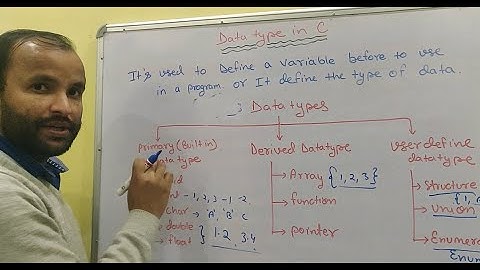 Data type in C
It's used to Define a variable before to use
in a program or It define the type of data.
Data types
primary (Built in)
datatype
- 1, 2, 3 -1 -2
char → 'A', 'B' C
double
float } 1.2, 3.4
Derived Datatype
→ Array {1, 2, 3}
→ function
→ pointer
user define
datatype
→ Structure
→ Union
→ Enumera